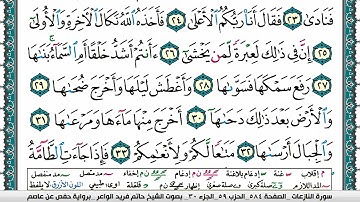 فَنَادَىٰ ٢٣ فَقَالَ أَنَا۠ رَبُّكُمُ ٱلْأَعْلَىٰ ٢٤ فَأَخَذَهُ ٱللَّهُ نَكَالَ ٱلْآخِرَةِ وَٱلْأُولَىٰٓ
٢٥ إِنَّ فِى ذَٰلِكَ لَعِبْرَةً لِّمَن يَخْشَىٰٓ ٢٦ ءَأَنتُمْ أَشَدُّ خَلْقًا أَمِ ٱلسَّمَآءُ ۚ بَنَىٰهَا
٢٧ رَفَعَ سَمْكَهَا فَسَوَّىٰهَا ٢٨ وَأَغْطَشَ لَيْلَهَا وَأَخْرَجَ ضُحَىٰهَا ٢٩
وَٱلْأَرْضَ بَعْدَ ذَٰلِكَ دَحَىٰهَآ ٣٠ أَخْرَجَ مِنْهَا مَآءَهَا وَمَرْعَىٰهَا ٣١
وَٱلْجِبَالَ أَرْسَىٰهَا ٣٢ مَتَـٰعًا لَّكُمْ وَلِأَنْعَـٰمِكُمْ ٣٣ فَإِذَا جَآءَتِ ٱلطَّآمَّةُ
سورة النازعات . الصفحة ٥٨٤ الحزب ٥٩ الجزء ٣٠ بصوت الشيخ حاتم فريد الواعر . برواية حفص عن عاصم